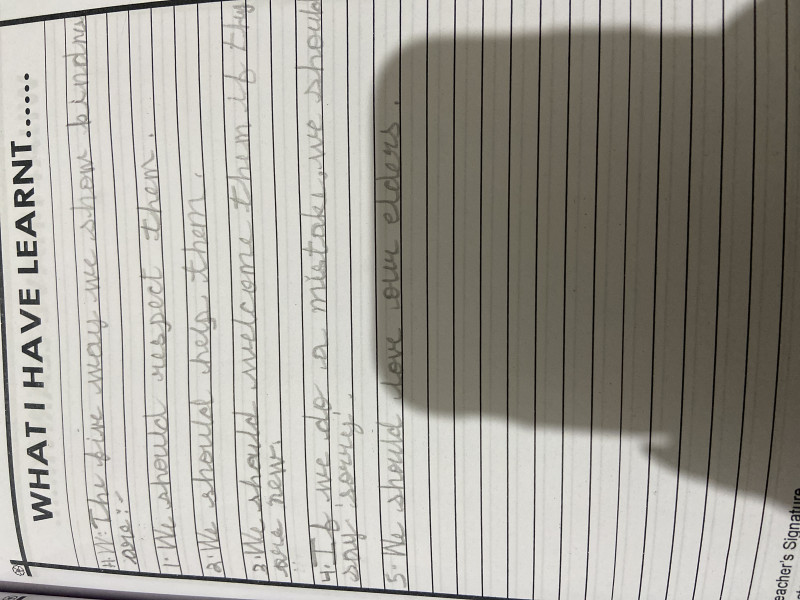 WHAT I HAVE LEARNT......
H.W. The five way we show kindnes
are:-
1. We should respect them.
2. We should help them.
3. We should welcome them if they
are new.
4. If we do a mistake, we should
say 'sorry'.
5. We should love our elders.
eacher's Signature